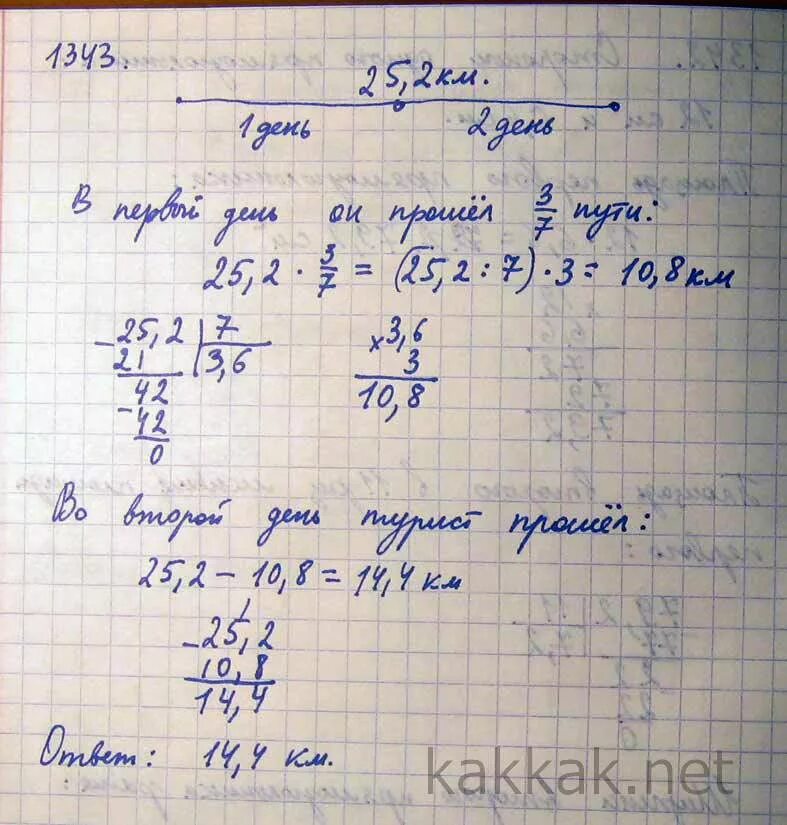 1343.
25,2 км.
1 день 2 день
В первый день он прошёл 3/7 пути:
25,2 · 3/7 = (25,2 : 7) · 3 = 10,8 км
- 25,2 | 7
21 3,6
- 42
42
0
× 3,6
3
10,8
Во второй день турист прошёл:
25,2 - 10,8 = 14,4 км
- 25,2
10,8
14,4
Ответ: 14,4 км.
kakkak.net